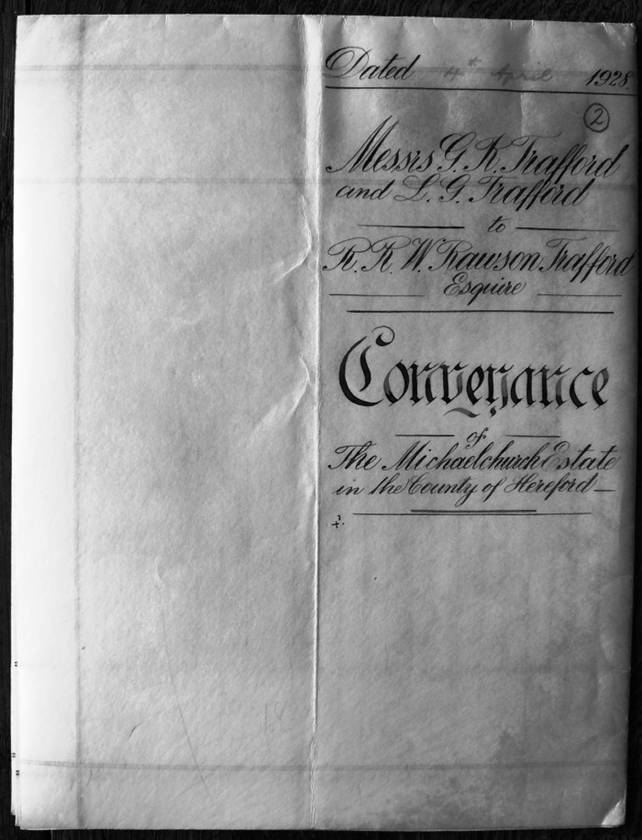 Dated 4th April 1928
2
Messrs G. R. Trafford
and L. G. Trafford
to
R. R. W. Rawson Trafford
Esquire
Conveyance
of
The Michaelchurch Estate
in the County of Hereford